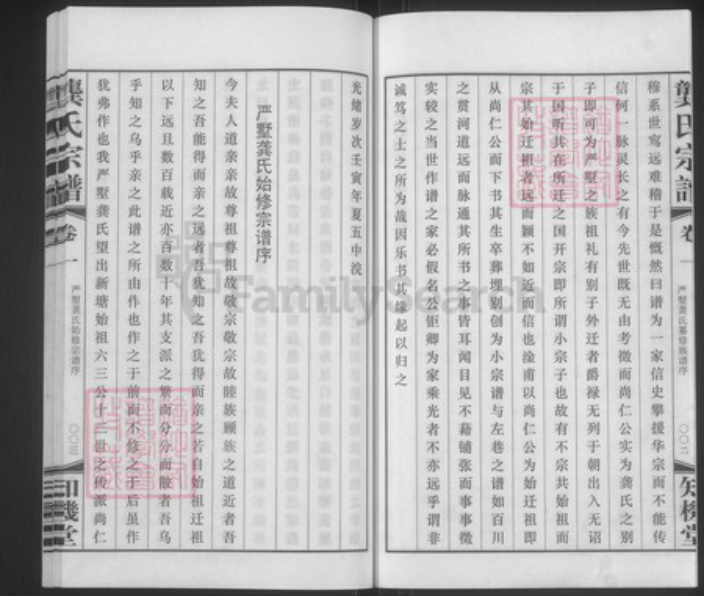 龚氏宗谱
卷一
严墅龚氏纂修族谱序
〇〇二
知机堂
穆系世写远难稽于是慨然曰谱为一家信史攀援华宗而不能传
信何一脉灵长之有今先世既无由考徵而尚仁公实为龚氏之别
子即可为严墅之族祖礼有别子外迁者爵禄无列于朝出入无诏
于国听其在所迁之国开宗即所谓小宗子也故有不宗共始祖而
宗其始迁祖者远而顾不如近而信也淦甫以尚仁公为始迁祖即
从尚仁公而下书其生卒葬埋别创为小宗谱与左巷之谱如百川
之贯河道远而脉通其所书之事皆耳闻目见不藉铺张而事事徵
实较之当世作谱之家必假名公钜卿为家乘光者不亦远乎谓非
诚笃之士之所为哉因乐书其缘起以归之
光绪岁次壬寅年夏五中浣
严墅龚氏始修宗谱序
今夫人道亲亲故尊祖尊祖故敬宗敬宗故睦族顾族之道近者吾
知之吾能得而亲之远者吾犹知之吾犹得而亲之若自始祖迁祖
以下远且数百载近亦百数十年其支派之繁而分分而散者吾乌
乎知之乌乎亲之此谱之所由作也作之于前而不修之于后虽作
犹弗作也我严墅龚氏望出新塘始祖六三公十三世之传派尚仁
龚氏宗谱
卷一
严墅龚氏始修宗谱序
〇〇三
知机堂
FamilySearch